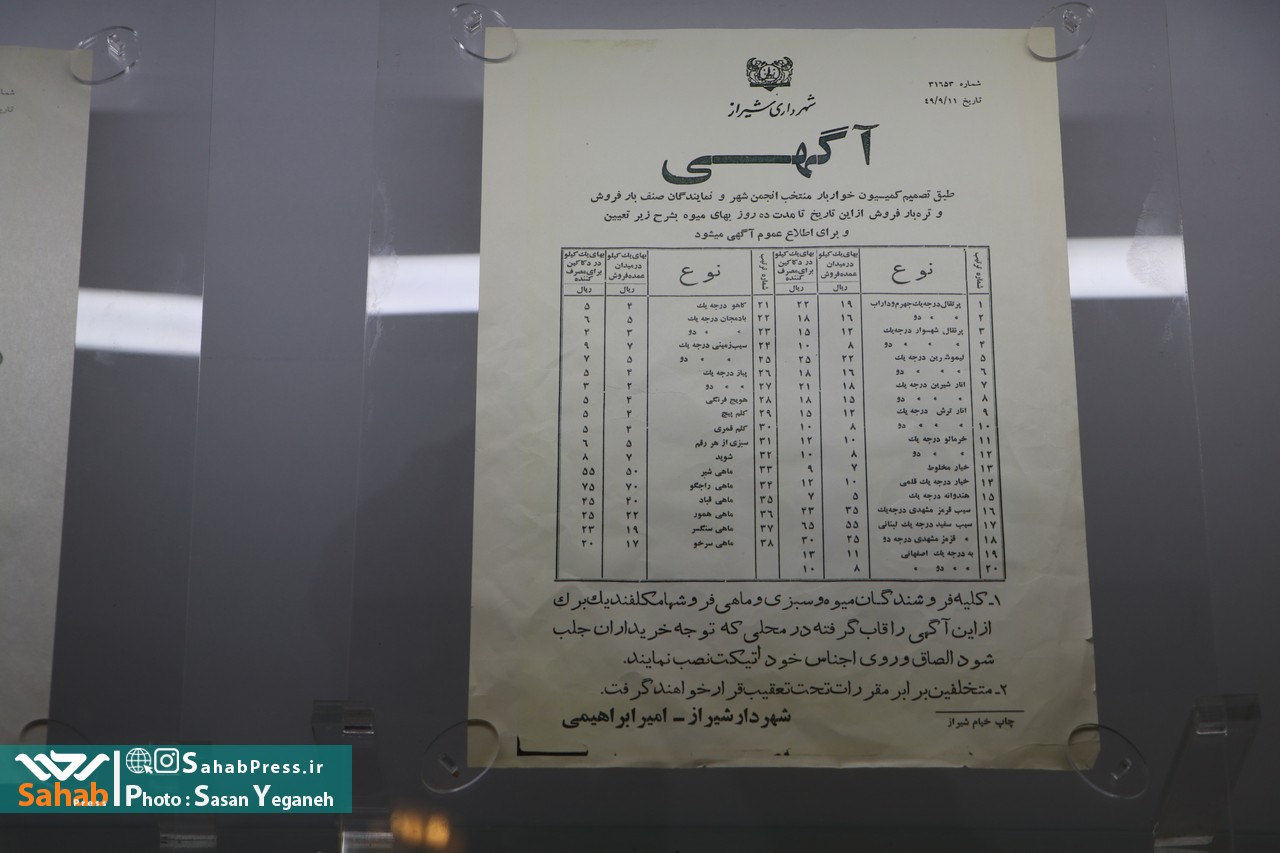 شماره ۳۱۶۵۳
تاریخ ۴۹/۹/۱۱
شهرداری شیراز
آگهی
طبق تصمیم کمیسیون خواربار منتخب انجمن شهر و نمایندگان صنف بار فروش
و تره‌بار فروش از این تاریخ تا مدت ده روز بهای میوه بشرح زیر تعیین
و برای اطلاع عموم آگهی میشود
شماره ترتیب نوع بهای یك کیلو در میدان عمده فروش ریال بهای یك کیلو در دکاکین برای مصرف کننده ریال شماره ترتیب نوع بهای یك کیلو در میدان عمده فروش ریال بهای یك کیلو در دکاکین برای مصرف کننده ریال
۱ پرتقال درجه یك جهرم و داراب ۱۹ ۲۲ ۲۱ کاهو درجه یك ۴ ۵
۲ » » دو ۱۶ ۱۸ ۲۲ بادمجان درجه یك ۵ ۶
۳ پرتقال شهسوار درجه یك ۱۲ ۱۵ ۲۳ » » دو ۳ ۴
۴ » » » دو ۸ ۱۰ ۲۴ سیب زمینی درجه یك ۷ ۹
۵ لیموشیرین درجه یك ۲۲ ۲۵ ۲۵ » » دو ۵ ۷
۶ » » » دو ۱۶ ۱۸ ۲۶ پیاز درجه یك ۴ ۵
۷ انار شیرین درجه یك ۱۸ ۲۱ ۲۷ » » دو ۲ ۳
۸ » » » دو ۱۵ ۱۸ ۲۸ هویج فرنگی ۴ ۵
۹ انار ترش درجه یك ۱۲ ۱۵ ۲۹ کلم پیچ ۴ ۵
۱۰ » » » دو ۸ ۱۰ ۳۰ کلم قمری ۴ ۵
۱۱ خرمالو درجه یك ۱۰ ۱۲ ۳۱ سبزی از هر رقم ۵ ۶
۱۲ » » دو ۸ ۱۰ ۳۲ شوید ۷ ۸
۱۳ خیار مخلوط ۷ ۹ ۳۳ ماهی شیر ۵۰ ۵۵
۱۴ خیار درجه یك قلمی ۱۰ ۱۲ ۳۴ ماهی راجگو ۷۰ ۷۵
۱۵ هندوانه درجه یك ۵ ۷ ۳۵ ماهی قباد ۴۰ ۴۵
۱۶ سیب قرمز مشهدی درجه یك ۳۵ ۴۳ ۳۶ ماهی همور ۲۲ ۲۵
۱۷ سیب سفید درجه یك لبنانی ۵۵ ۶۵ ۳۷ ماهی سنگسر ۱۹ ۲۳
۱۸ » قرمز مشهدی درجه دو ۲۵ ۳۰ ۳۸ ماهی سرخو ۱۷ ۲۰
۱۹ به درجه یك اصفهانی ۱۱ ۱۳
۲۰ » » دو » ۸ ۱۰
۱ـ کلیه فروشندگان میوه و سبزی و ماهی فروشها مکلفند یك برك
از این آگهی را قاب گرفته در محلی که توجه خریداران جلب
شود الصاق و روی اجناس خود اتیکت نصب نمایند.
۲ـ متخلفین برابر مقررات تحت تعقیب قرار خواهند گرفت.
شهردار شیراز ـ امیر ابراهیمی
چاپ خیام شیراز
SahabPress.ir
Sahab Press
Photo : Sasan Yeganeh